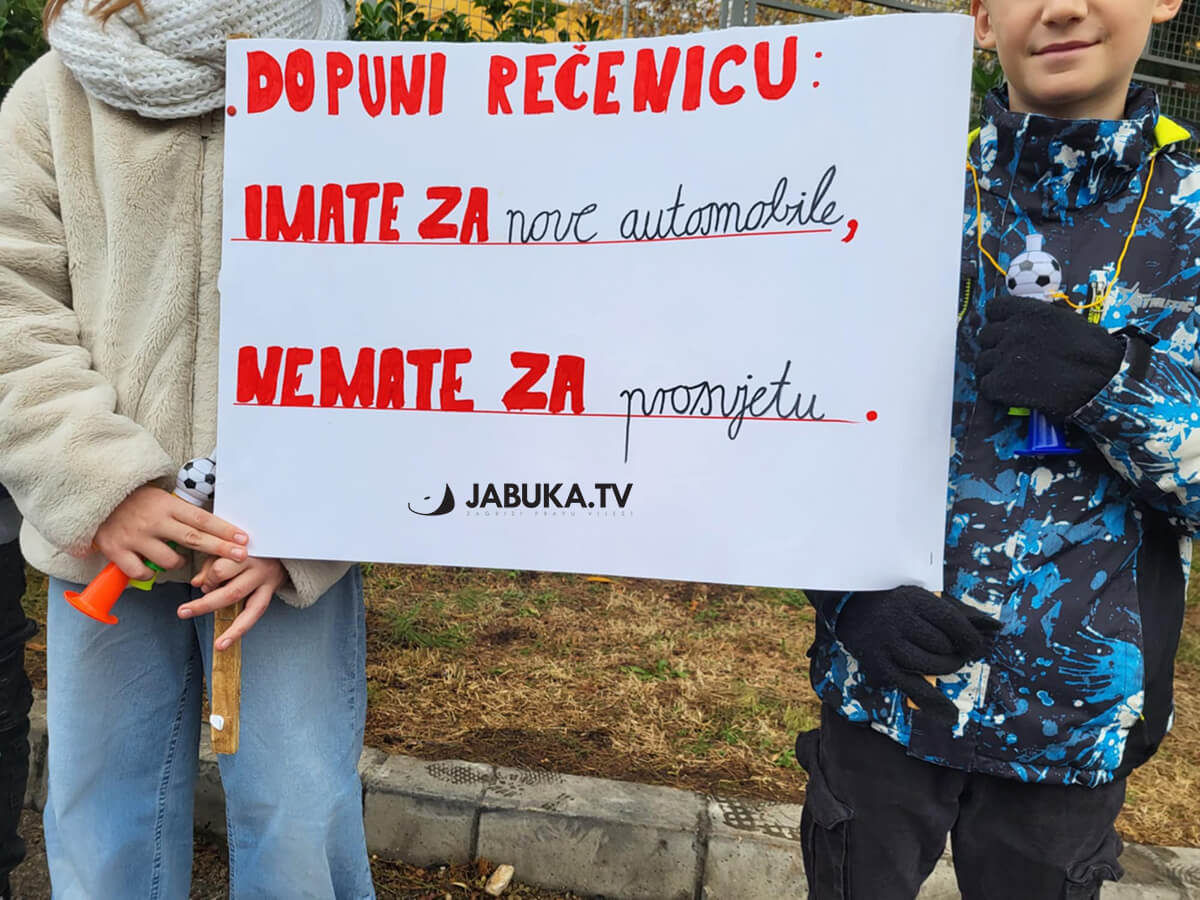 DOPUNI REČENICU:
IMATE ZA nove automobile,
NEMATE ZA prosvjetu.
JABUKA.TV
ZAGRIZI PRAVU VIJEST